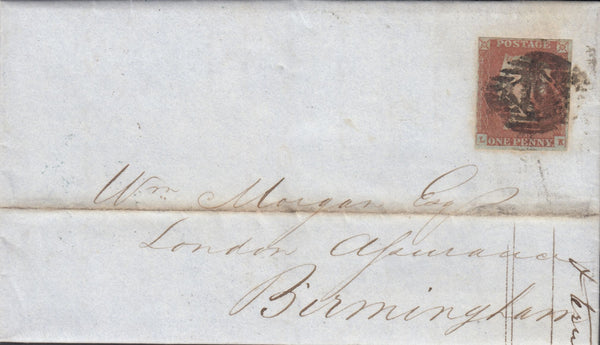 POSTAGE
L K
ONE PENNY
Wm Morgan Esqr
London Aſsurance
Birmingham